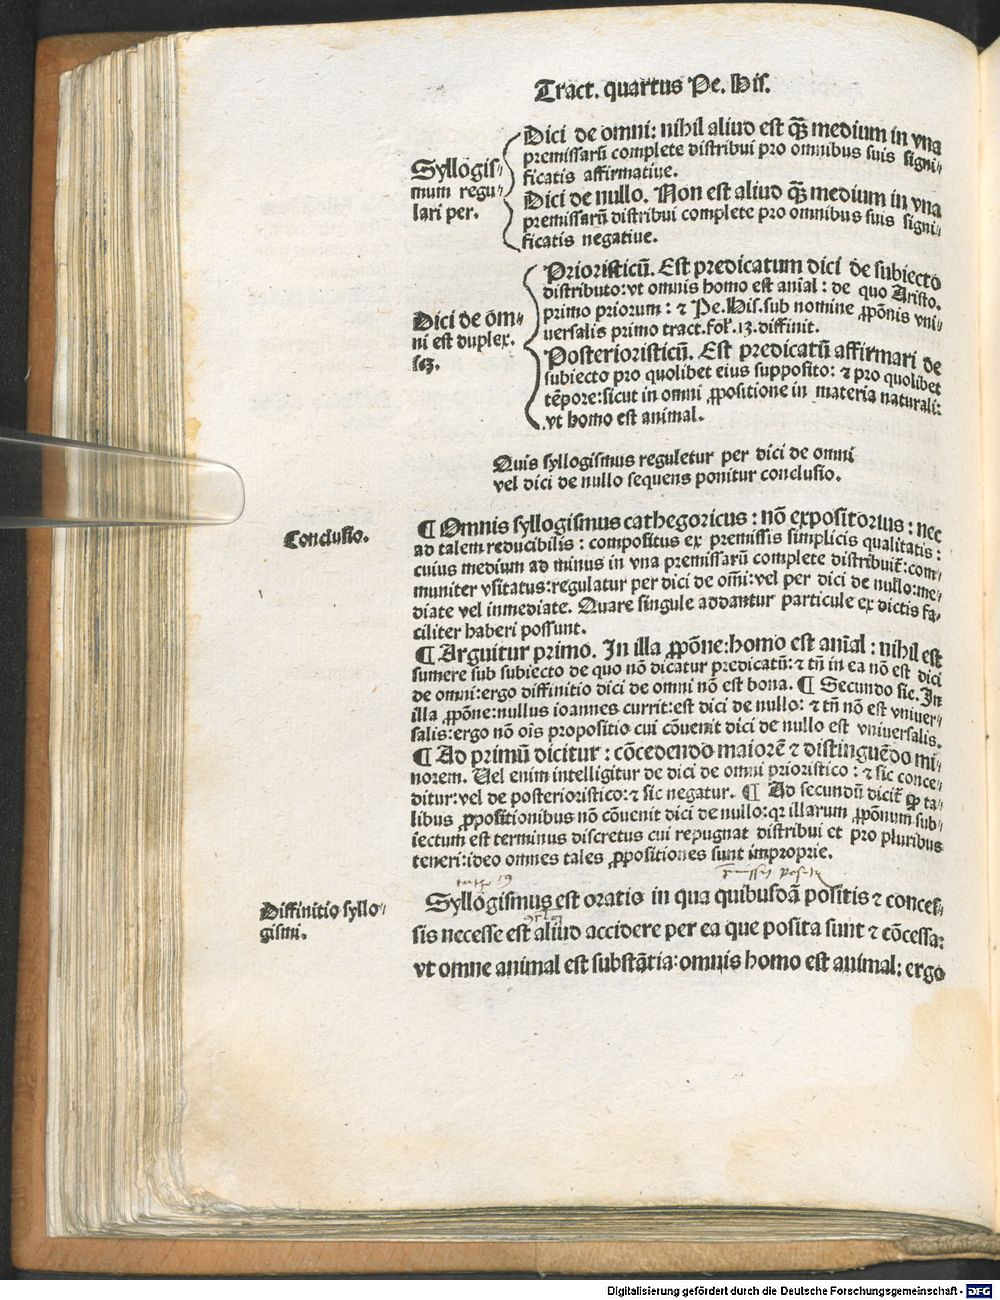 Tract. quartus Pe. His.
Syllogis⸗
mum regu⸗
lari per.
Dici de omni: nihil aliud est qꝫ medium in vna
premissarū complete distribui pro omnibus suis signi⸗
ficatis affirmatiue.
Dici de nullo. Non est aliud qꝫ medium in vna
premissarū distribui complete pro omnibus suis signi⸗
ficatis negatiue.
Dici de om̄⸗
ni est duplex.
scꝫ.
Prioristicū. Est predicatum dici de subiecto
distributo: vt omnis homo est aniāl: de quo Aristo.
primo priorum: ⁊ Pe. His. sub nomine ꝓpōnis vni⸗
uersalis primo tract. fol. 13. diffinit.
Posterioristicū. Est predicatū affirmari de
subiecto pro quolibet eius supposito: ⁊ pro quolibet
tēpore: sicut in omni ꝓpositione in materia naturali:
vt homo est animal.
Quis syllogismus reguletur per dici de omni
vel dici de nullo sequens ponitur conclusio.
Conclusio.
¶ Omnis syllogismus cathegoricus: nō expositorius: nec
ad talem reducibilis: compositus ex premissis simplicis qualitatis:
cuius medium ad minus in vna premissarū complete distribuit̄: com⸗
muniter vsitatus: regulatur per dici de om̄i: vel per dici de nullo: me⸗
diate vel inmediate. Quare singule addantur particule ex dictis fa⸗
ciliter haberi possunt.
¶ Arguitur primo. In illa ꝓpōne: homo est aniāl: nihil est
sumere sub subiecto de quo nō dicatur predicatū: ⁊ tn̄ in ea nō est dici
de omni: ergo diffinitio dici de omni nō est bona. ¶ Secundo sic. In
illa ꝓpōne: nullus ioannes currit: est dici de nullo: ⁊ tn̄ nō est vniuer⸗
salis: ergo nō oīs propositio cui cōuenit dici de nullo est vniuersalis.
¶ Ad primū dicitur: cōcedendo maiorē ⁊ distinguēdo mi⸗
norem. Uel enim intelligitur de dici de omni prioristico: ⁊ sic conce⸗
ditur: vel de posterioristico: ⁊ sic negatur. ¶ Ad secundū dicit̄ ꝙ ta⸗
libus ꝓpositionibus nō cōuenit dici de nullo: qꝛ illarum ꝓpōnum sub⸗
iectum est terminus discretus cui repugnat distribui et pro pluribus
teneri: ideo omnes tales ꝓpositiones sunt improprie.
Diffinitio syllo⸗
gismi.
Syllogismus est oratio in qua quibusdā positis ⁊ conces⸗
sis necesse est aliud accidere per ea que posita sunt ⁊ cōcessa:
vt omne animal est substātia: omnis homo est animal: ergo
Digitalisierung gefördert durch die Deutsche Forschungsgemeinschaft - DFG